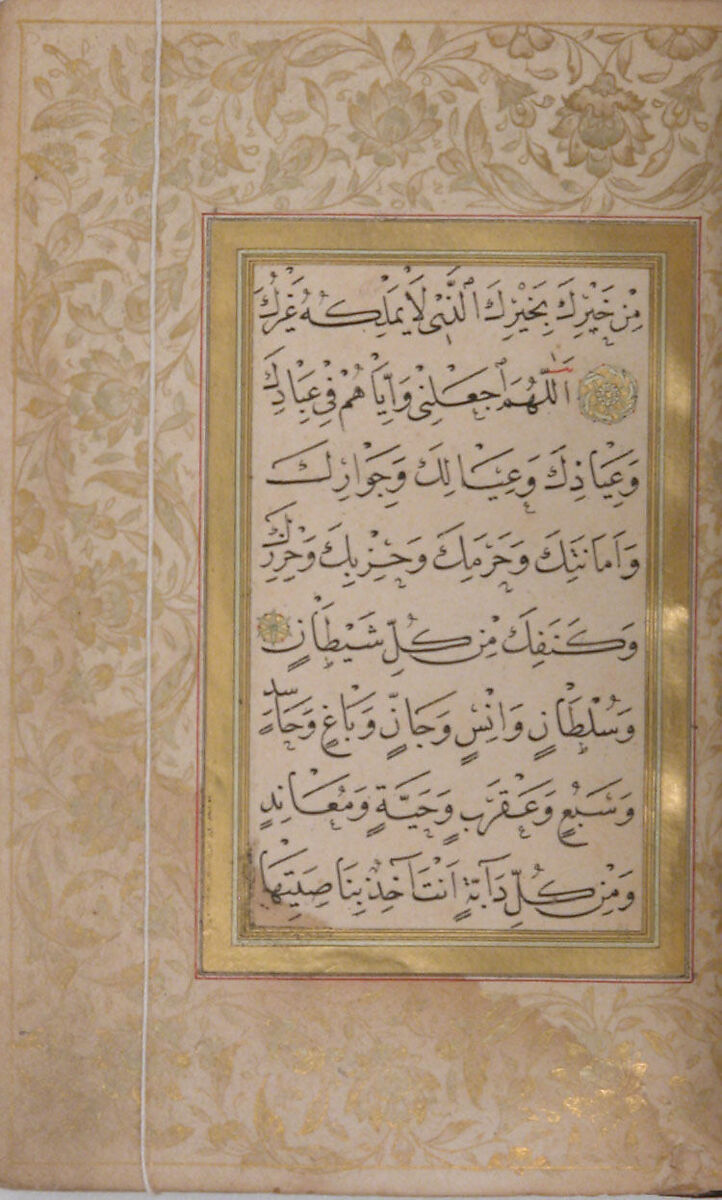 مِنْ خَيْرِكَ بِخَيْرِكَ الَّذِى لَا يَمْلِكُهُ غَيْرُكَ
اَللّٰهُمَّ اجْعَلْنِى وَاِيَّاهُمْ فِى عِبَادِكَ
وَعِيَاذِكَ وَعِيَالِكَ وَجَوَارِكَ
وَاَمَانَتِكَ وَحَرَمِكَ وَحِزْبِكَ وَحِرْزِكَ
وَكَنَفِكَ مِنْ كُلِّ شَيْطَانٍ
وَسُلْطَانٍ وَاِنْسٍ وَجَانٍّ وَبَاغٍ وَحَاسِدٍ
وَسَبُعٍ وَعَقْرَبٍ وَحَيَّةٍ وَمُعَانِدٍ
وَمِنْ كُلِّ دَابَّةٍ اَنْتَ آخِذٌ بِنَاصِيَتِهَا